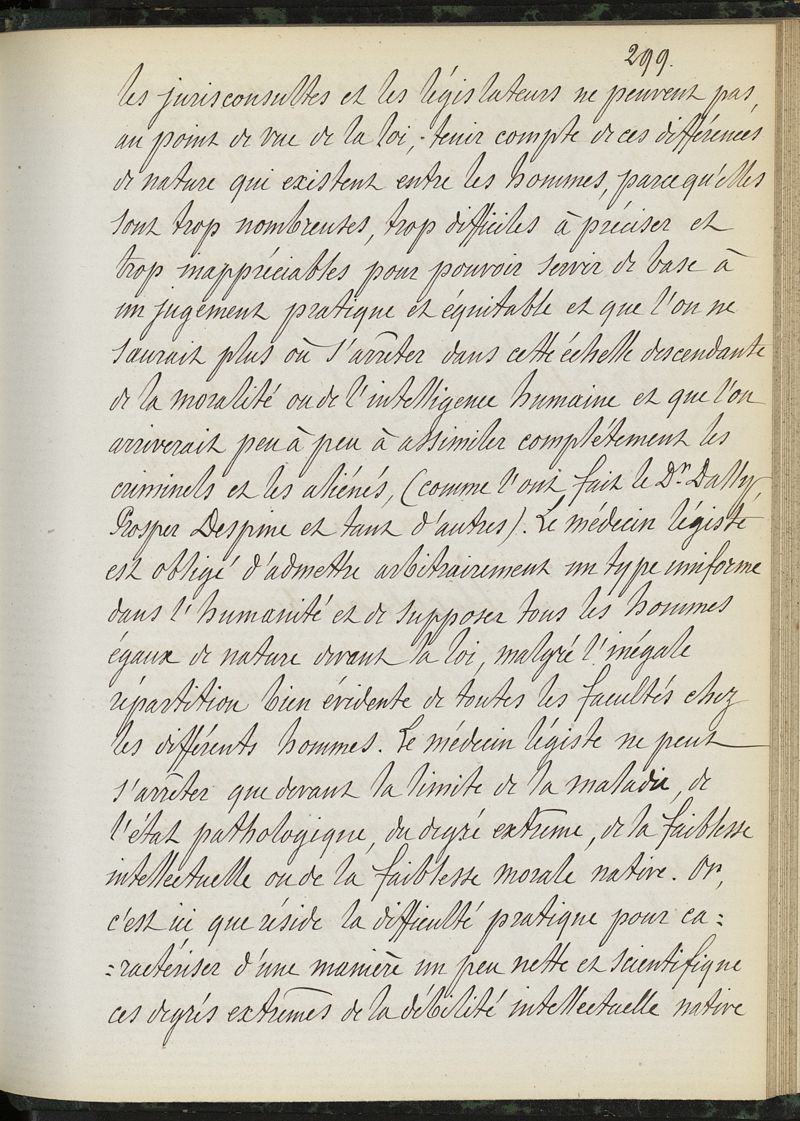 299.
les jurisconsultes et les législateurs ne peuvent pas,
au point de vue de la loi, tenir compte de ces différences
de nature qui existent entre les hommes, parcequ'elles
sont trop nombreuses, trop difficiles à préciser et
trop inappréciables pour pouvoir servir de base à
un jugement pratique et équitable et que l'on ne
saurait plus où s'arrêter dans cette échelle descendante
de la moralité ou de l'intelligence humaine et que l'on
arriverait peu à peu à assimiler complétement les
criminels et les aliénés, (comme l'ont fait le Dr. Dally,
Prosper Despine et tant d'autres). Le médecin légiste
est obligé d'admettre arbitrairement un type uniforme
dans l'humanité et de supposer tous les hommes
égaux de nature devant la loi, malgré l'inégale
répartition bien évidente de toutes les facultés chez
les différents hommes. Le médecin légiste ne peut
s'arrêter que devant la limite de la maladie, de
l'état pathologique, du degré extrême, de la faiblesse
intellectuelle ou de la faiblesse morale native. Or,
c'est ici que réside la difficulté pratique pour ca=
=ractériser d'une manière un peu nette et scientifique
ces degrés extrêmes de la débilité intellectuelle native